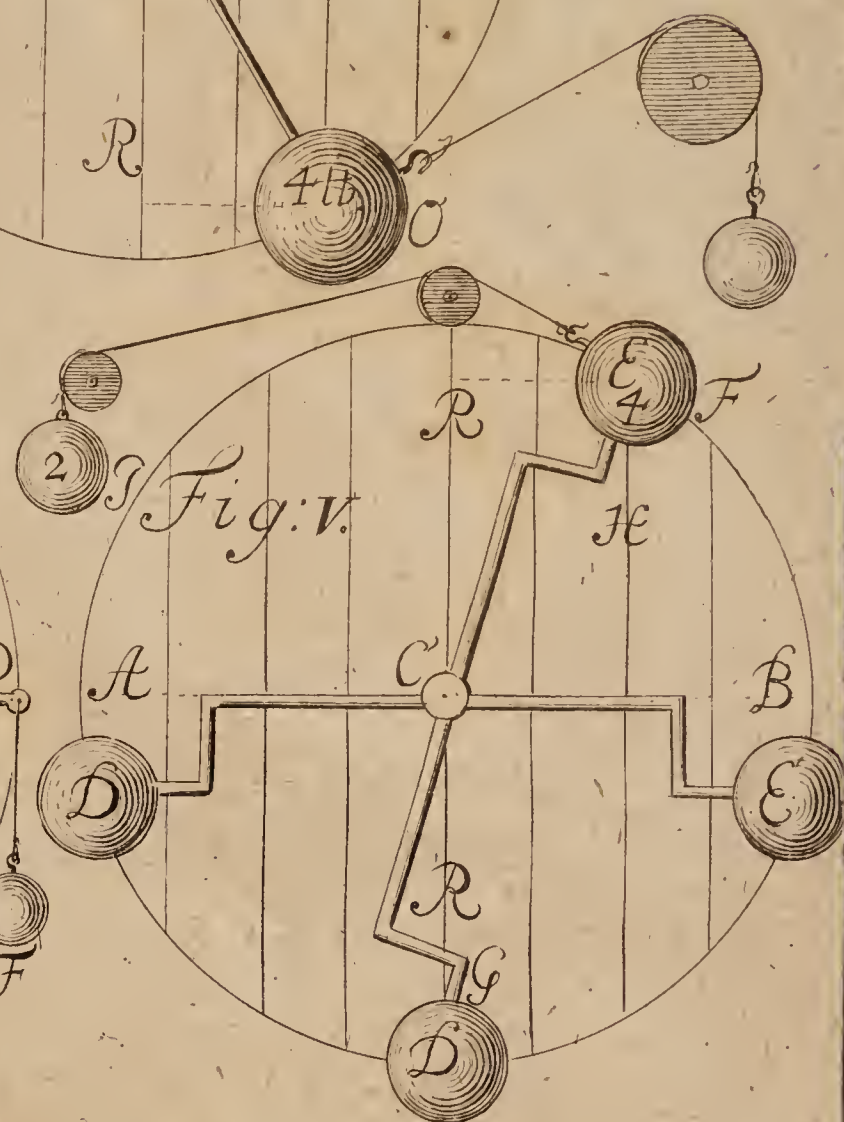 R
4 ℔.
O
E
4
F
R
2
I
Fig: V.
H
C
A
B
D
E
R
G
D
F